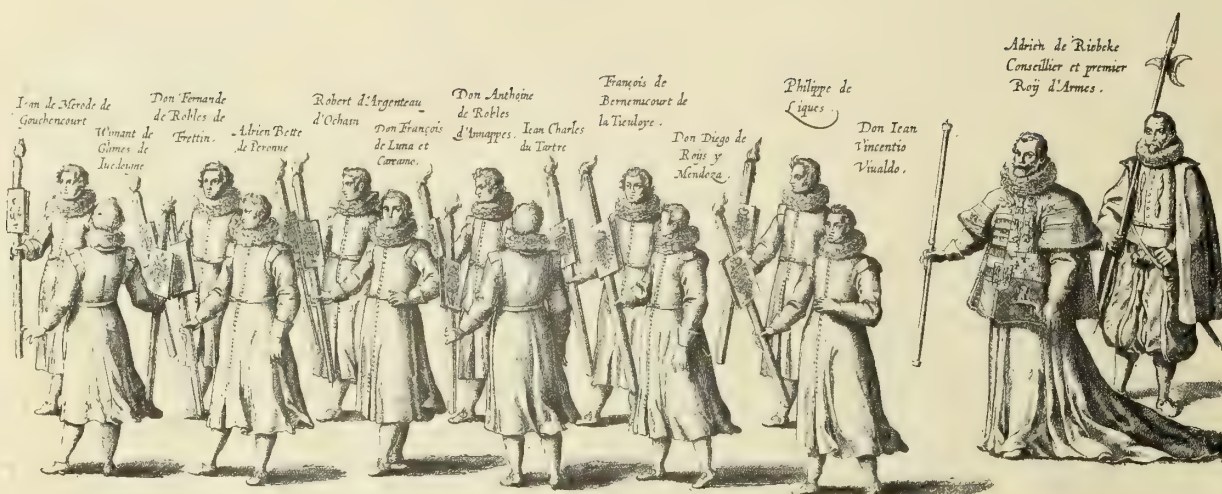 Jean de Merode de
Gouchencourt
Winant de
Glimes de
Don Fernande
de Robles de
Frettin.
Adrien Bette
de Peronne
Robert d'Argenteau
d'Ochain
Don François
de Luna et
Carcame.
Don Anthoine
de Robles
d'Annappes.
Iean Charles
du Tartre
François de
Bernemicourt de
la Tieuloye.
Don Diego de
Roijs y
Mendoza.
Philippe de
Liques.
Don Iean
Vincentio
Viualdo.
Adrien de Riebeke
Conseillier et premier
Roÿ d'Armes.